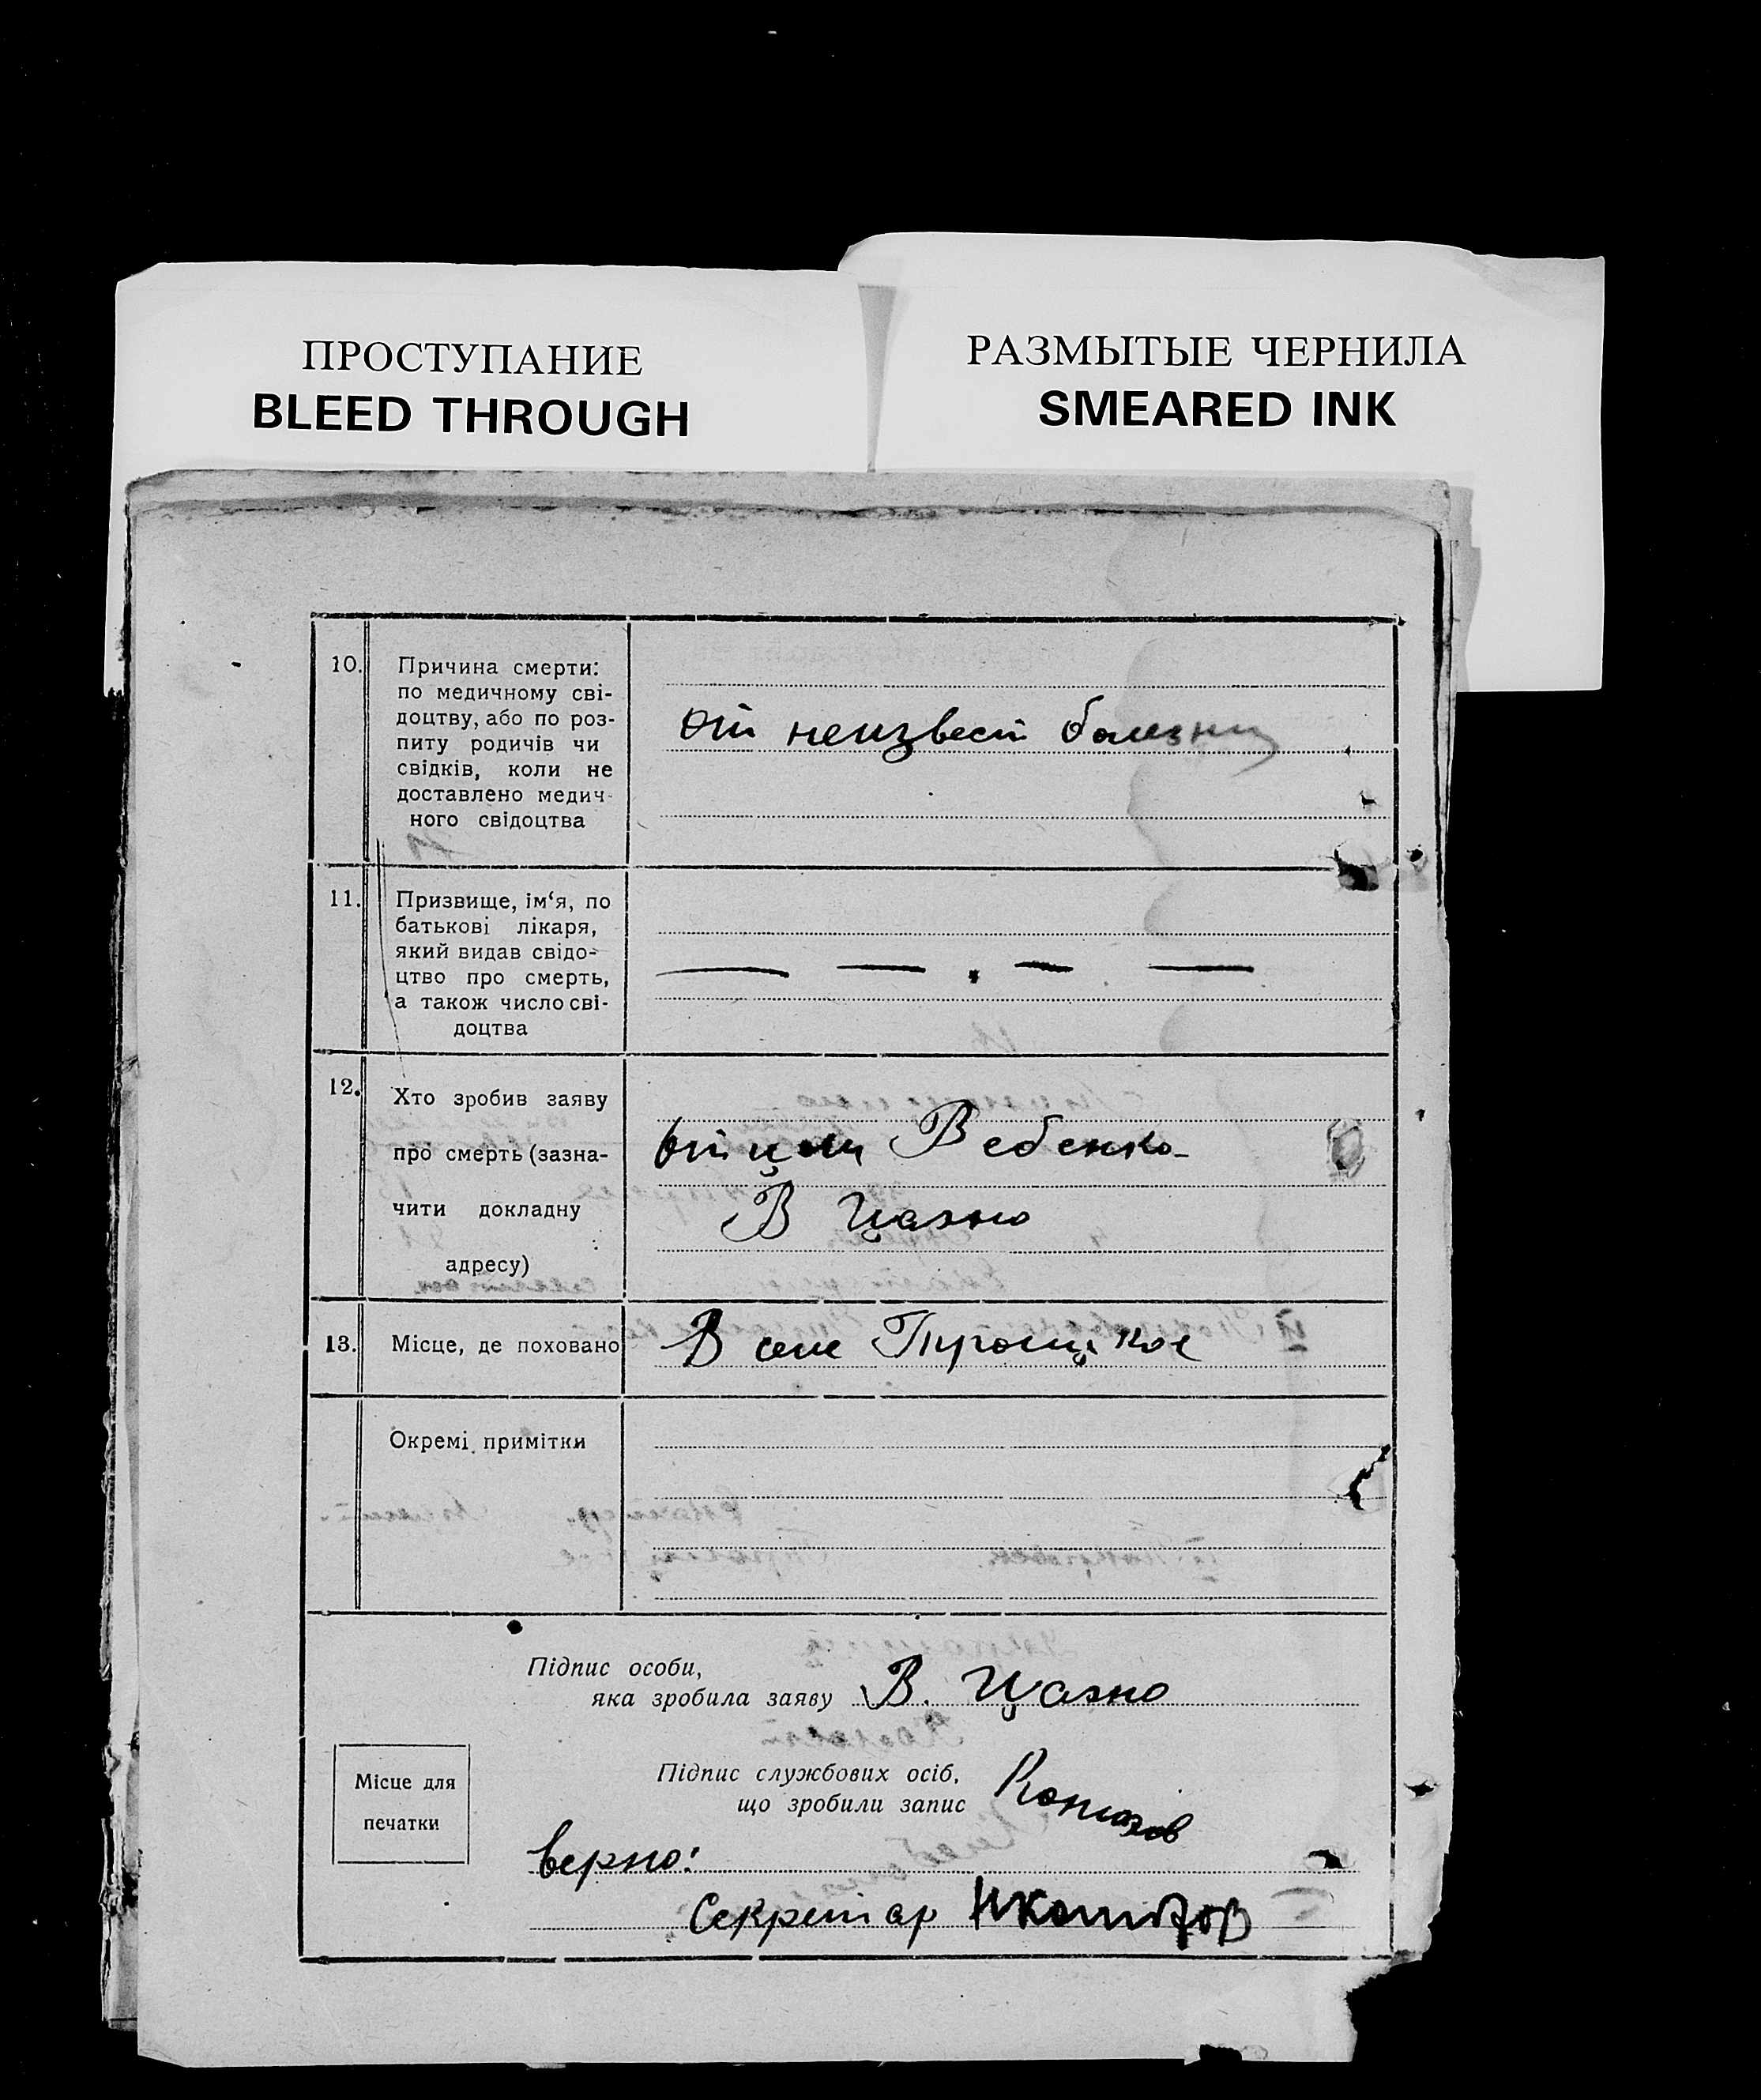 ПРОСТУПАНИЕ
BLEED THROUGH
РАЗМЫТЫЕ ЧЕРНИЛА
SMEARED INK
10. Причина смерти:
по медичному сві-
доцтву, або по роз-
питу родичів чи
свідків, коли не
доставлено медич-
ного свідоцтва
от неизвест болезни
11. Призвище, ім‘я, по
батькові лікаря,
який видав свідо-
цтво про смерть,
а також число сві-
доцтва
12. Хто зробив заяву
про смерть (зазна-
чити докладну
адресу)
В Цазно
13. Місце, де поховано
В селе Троицкое
Окремі примітки
Підпис особи,
яка зробила заяву В. Цазно
Підпис службових осіб,
що зробили запис
Місце для
печатки
верно:
Секретар